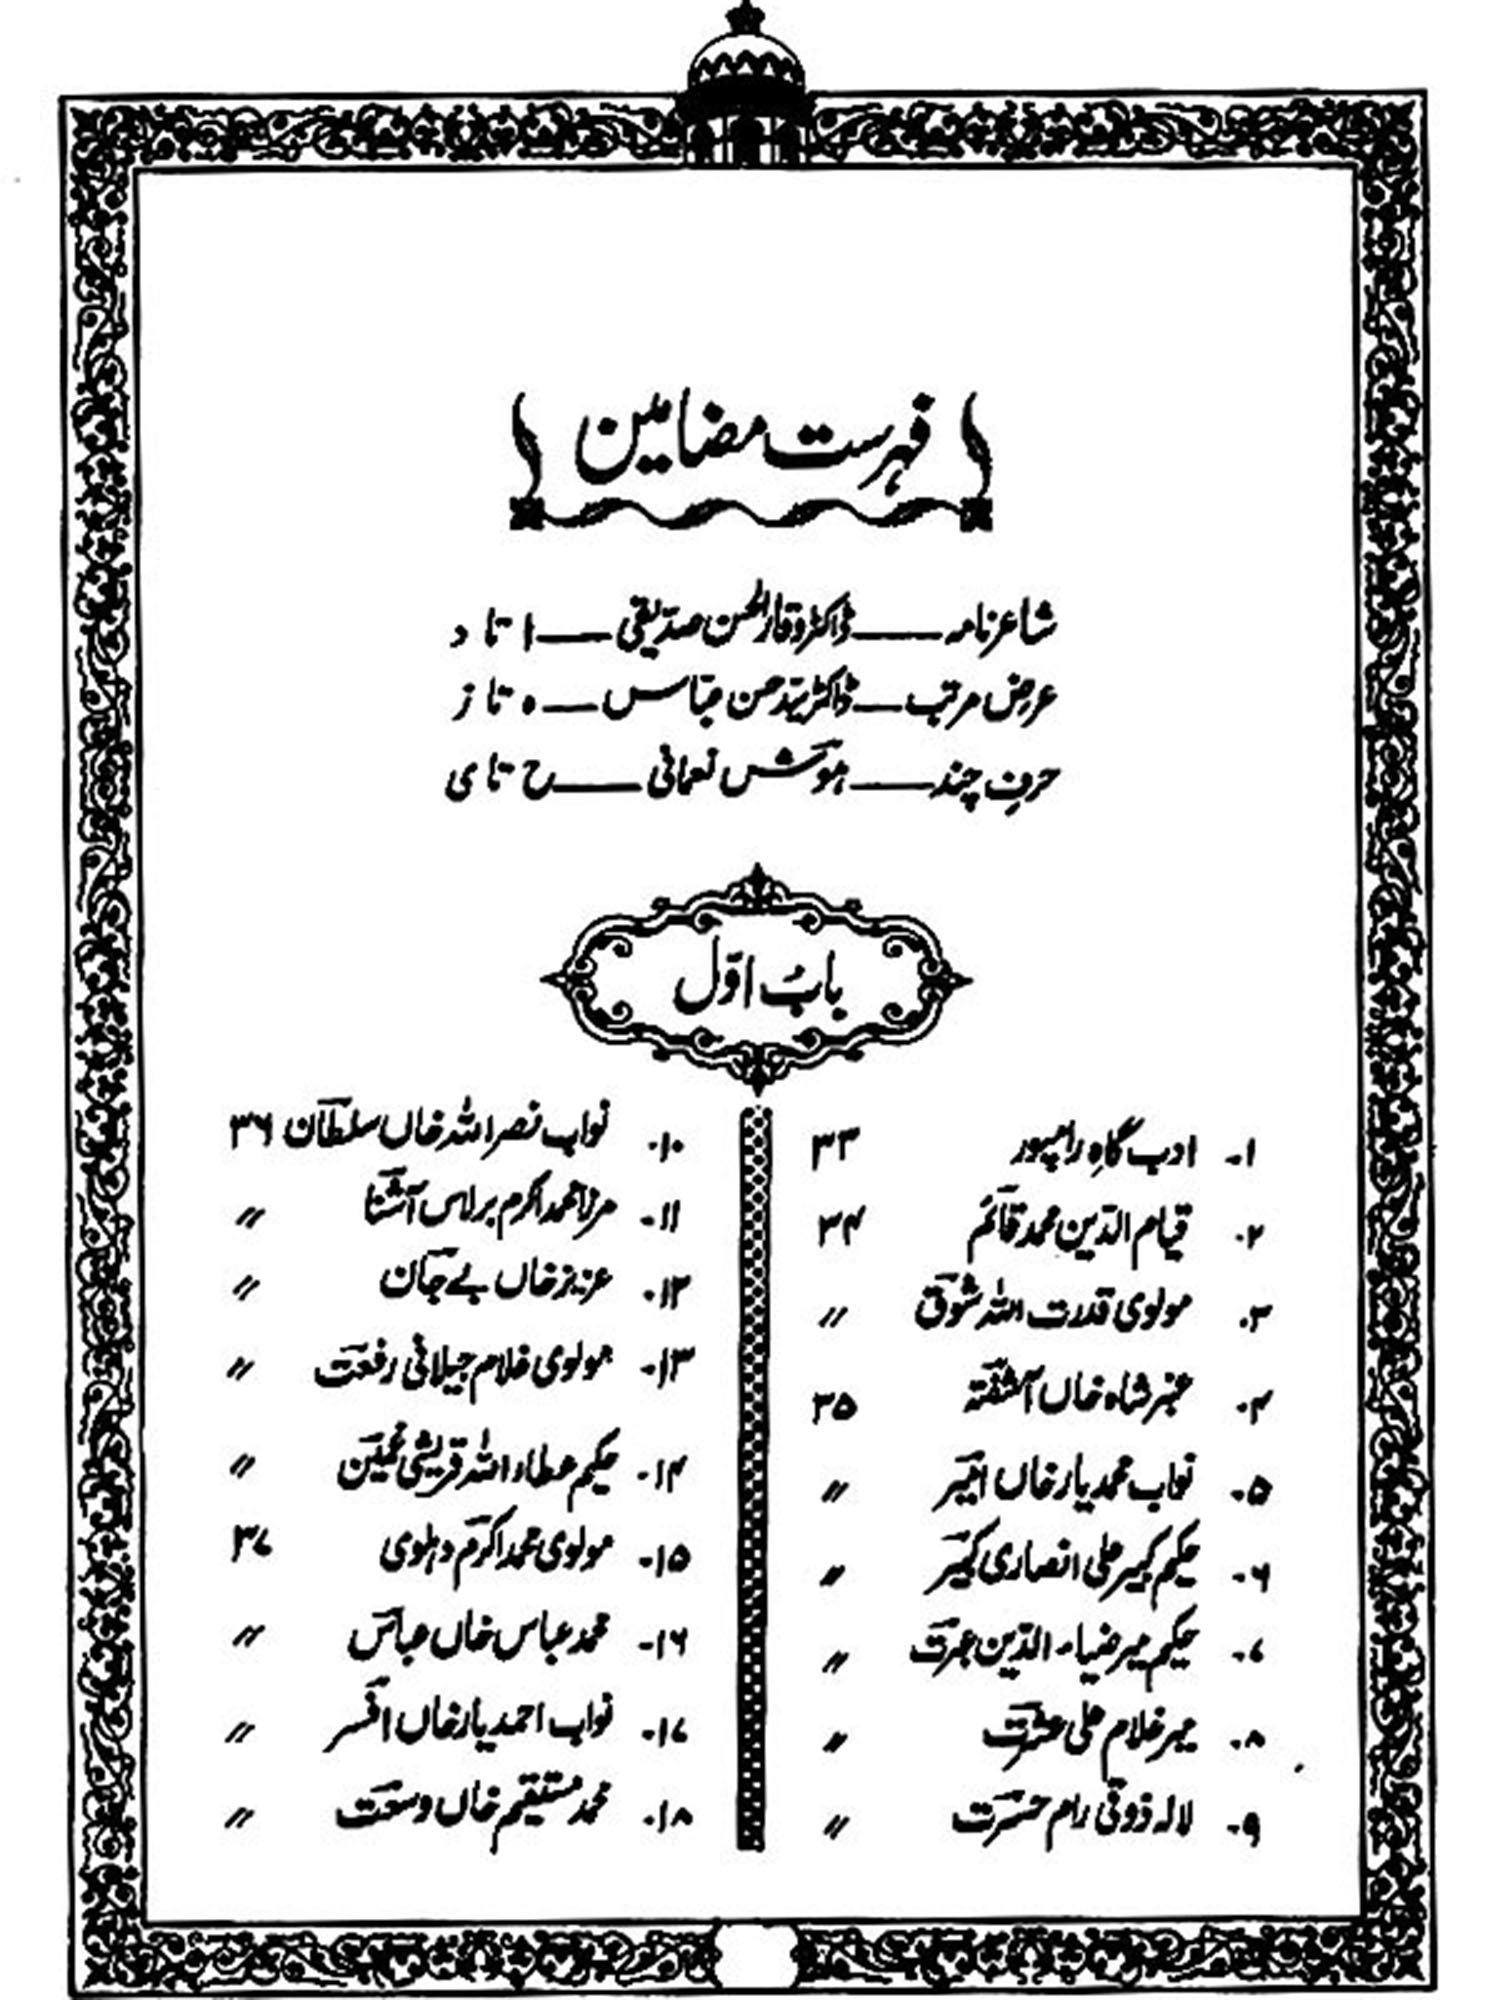 فہرست مضامین
شاعرنامہ — ڈاکٹر وقار الحسن صدیقی — ا تا د
عرضِ مرتب — ڈاکٹر سیّد حسن عبّاس — ہ تا ز
حرفِ چند — ہوشؔ نعمانی — ح تا ی
بابُ اوّل
۱۔ ادب گاہِ رامپور ۳۳
۲۔ قیام الدّین محمد قائمؔ ۳۴
۳۔ مولوی قدرت اللہ شوقؔ 〃
۴۔ عنبر شاہ خاں آشفتہؔ ۳۵
۵۔ نواب محمد یار خاں امیرؔ 〃
۶۔ حکیم کبیر علی انصاری کبیرؔ 〃
۷۔ حکیم میر ضیاء الدّین عبرتؔ 〃
۸۔ میر غلام علی عشرتؔ 〃
۹۔ لالہ ذوقی رام حسرتؔ 〃
۱۰۔ نواب نصر اللہ خاں سلطانؔ ۳۶
۱۱۔ مرزا محمد اکرم برلاس آشناؔ 〃
۱۲۔ عزیز خاں بے جانؔ 〃
۱۳۔ مولوی غلام جیلانی رفعتؔ 〃
۱۴۔ حکیم عطاء اللہ قریشی غمگینؔ 〃
۱۵۔ مولوی محمد اکرمؔ دہلوی ۳۷
۱۶۔ محمد عباس خاں عباسؔ 〃
۱۷۔ نواب احمد یار خاں افسرؔ 〃
۱۸۔ محمد مستقیم خاں وسعتؔ 〃